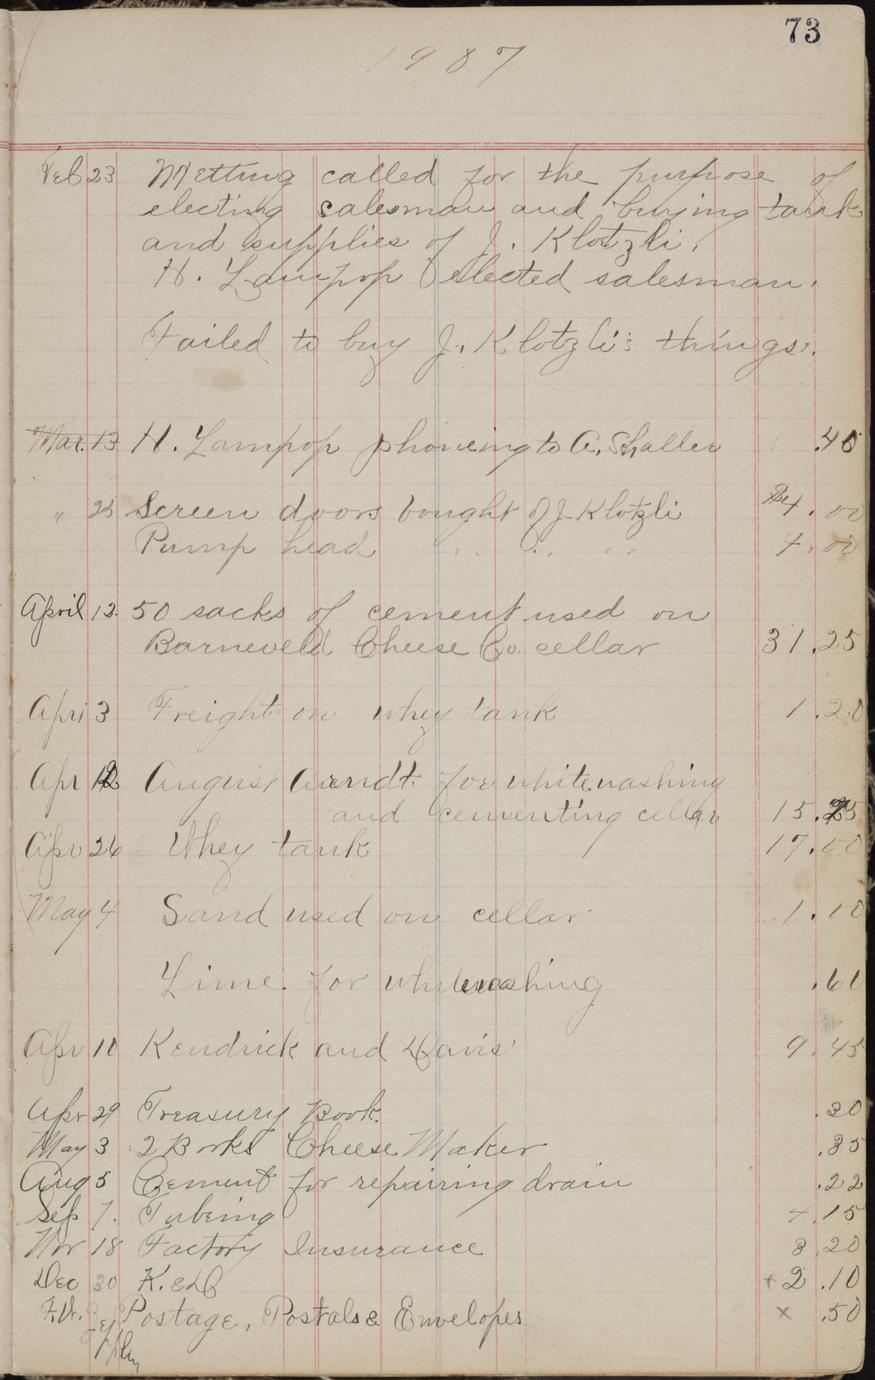 73
1907
Feb 23 Metting called for the purpose of
electing salesman and buying tank
and supplies of J. Klotzli.
H. Lampop elected salesman.
Failed to buy J. Klotzli's things.
Mar. 13 H. Lampop phoneing to A. Shaller .40
" 25 Screen doors bought of J. Klotzli $4.00
Pump head " " " 4.00
April 12. 50 sacks of cement used on
Barneveld Cheese Co. cellar 31.25
Apri 3 Freight on whey tank 1.20
Apr 12 August Arendt. for whitewashing
and cementing cellar 15.25
Apr 26 Whey tank 17.00
May 4 Sand used on cellar 1.00
Lime for whitewashing .60
Apr 10 Kendrick and Davis 9.45
Apr 29 Treasury Book. .30
May 3 2 Books Cheese Maker .35
Aug 5 Cement for repairing drain .22
Sep 7. Tubeing 4.15
Nov 18 Factory Insurance 3.20
Dec 30 K. & D + 2.10
Postage, Postals & Envelopes x .50